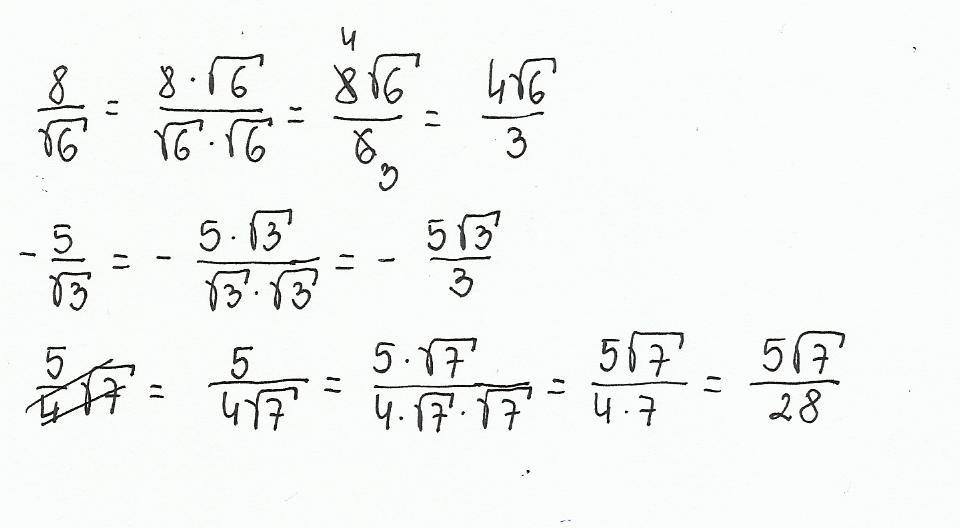 8/√6 = 8·√6/√6·√6 = 4 8√6/6 3 = 4√6/3
-5/√3 = - 5·√3/√3·√3 = - 5√3/3
5/4√7 = 5/4√7 = 5·√7/4·√7·√7 = 5√7/4·7 = 5√7/28